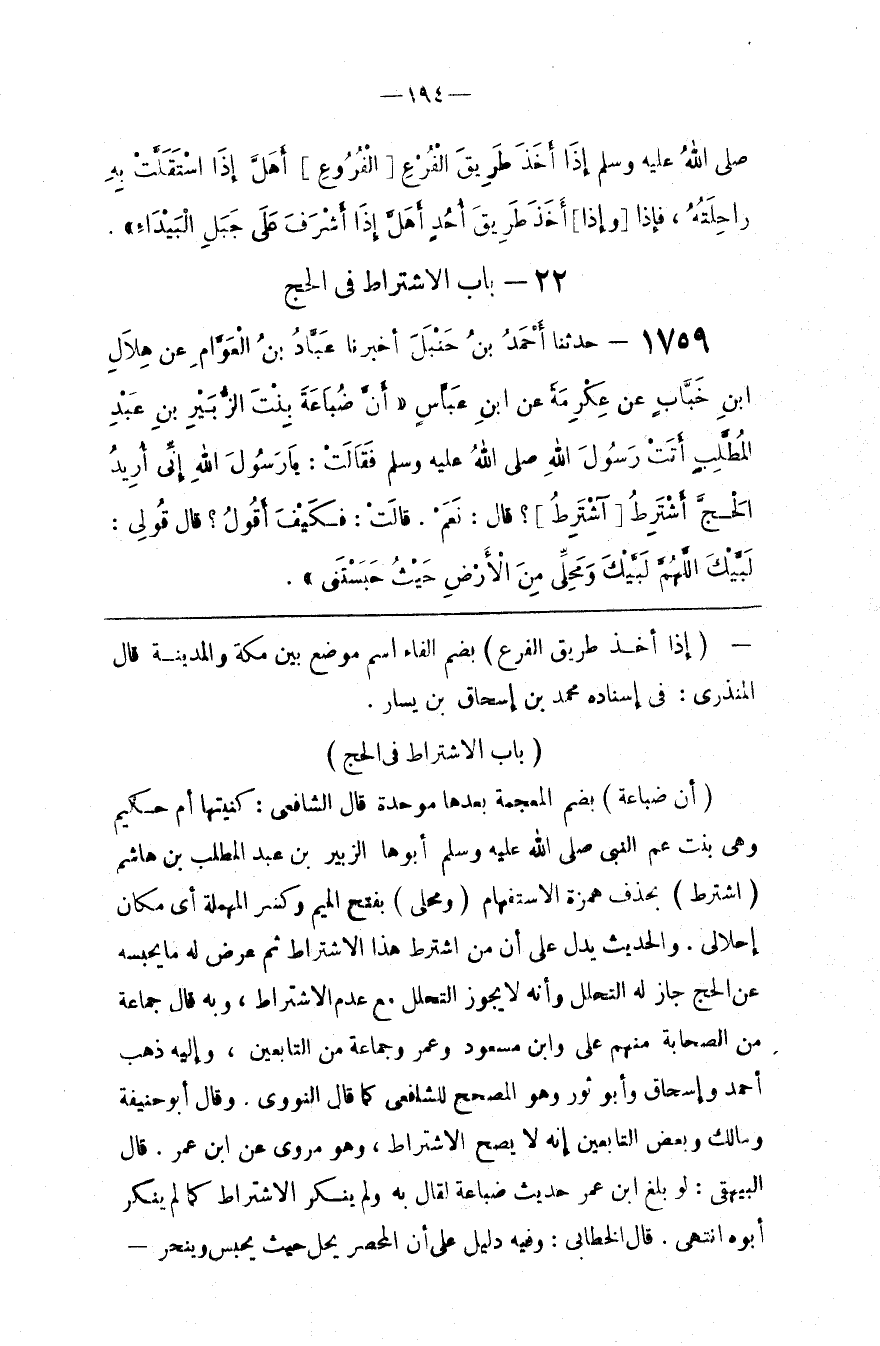 —١٩٤—
صلى اللهُ عليه وسلم إِذَا أَخَذَ طَرِيقَ الْفُرْعِ [ الْفُرُوعِ ] أَهَلَّ إِذَا اسْتَقَلَّتْ بِهِ
راحِلَتُهُ ، فإذا [وإذا] أَخَذَ طَرِيقَ أُحُدٍ أَهَلَّ إِذَا أَشْرَفَ عَلَى جَبَلِ الْبَيْدَاءِ» .
٢٢ — باب الاشتراط فى الحج
١٧٥٩ — حدثنا أَحْمَدُ بنُ حَنْبَلَ أخبرنا عَبَّادُ بنُ الْعَوَّامِ عن هِلاَلِ
ابنِ خَبَّابٍ عن عِكْرِمَةَ عن ابنِ عَبَّاسٍ « أَنَّ ضُبَاعَةَ بِنْتَ الزُّبَيْرِ بنِ عَبْدِ
المُطَّلِبِ أَتَتْ رَسُولَ اللهِ صلى اللهُ عليه وسلم فَقَالَتْ : يَارَسُولَ اللهِ إِنِّى أُرِيدُ
الحَجَّ أَشْتَرِطُ [ آشْتَرِطُ ] ؟ قال : نَعَمْ . قالَتْ : فَكَيْفَ أَقُولُ ؟ قال قُولِى :
لَبَّيْكَ اللَّهُمَّ لَبَّيْكَ وَمَحِلِّى مِنَ الْأَرْضِ حَيْثُ حَبَسْتَنِى » .
— ( إذا أخذ طريق الفرع ) بضم الفاء اسم موضع بين مكة والمدينة قال
المنذرى : فى إسناده محمد بن إسحاق بن يسار .
( باب الاشتراط فى الحج )
( أن ضباعة ) بضم المعجمة بعدها موحدة قال الشافعى : كنيتها أم حكيم
وهى بنت عم النبى صلى الله عليه وسلم أبوها الزبير بن عبد المطلب بن هاشم
( اشترط ) بحذف همزة الاستفهام ( ومحلى ) بفتح الميم وكسر المهملة أى مكان
إحلالى . والحديث يدل على أن من اشترط هذا الاشتراط ثم عرض له ما يحبسه
عن الحج جاز له التحلل وأنه لا يجوز التحلل مع عدم الاشتراط ، وبه قال جماعة
من الصحابة منهم على وابن مسعود وعمر وجماعة من التابعين ، وإليه ذهب
أحمد وإسحاق وأبو ثور وهو المصحح للشافعى كما قال النووى . وقال أبو حنيفة
ومالك وبعض التابعين إنه لا يصح الاشتراط ، وهو مروى عن ابن عمر . قال
البيهقى : لو بلغ ابن عمر حديث ضباعة لقال به ولم ينكر الاشتراط كما لم ينكر
أبوه انتهى . قال الخطابى : وفيه دليل على أن المحصر يحل حيث يحبس وينحر —